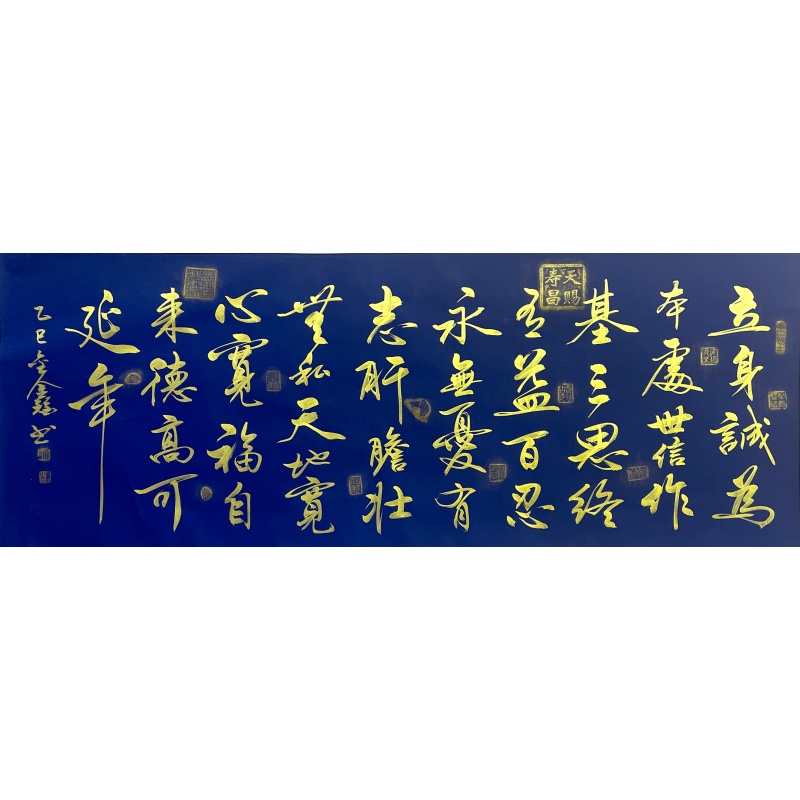 立身誠為
本處世信作
基三思終
有益百忍
永無憂有
志肝膽壯
無私天地寬
心寬福自
来德高可
延年
乙巳金鑫书
天賜
寿昌